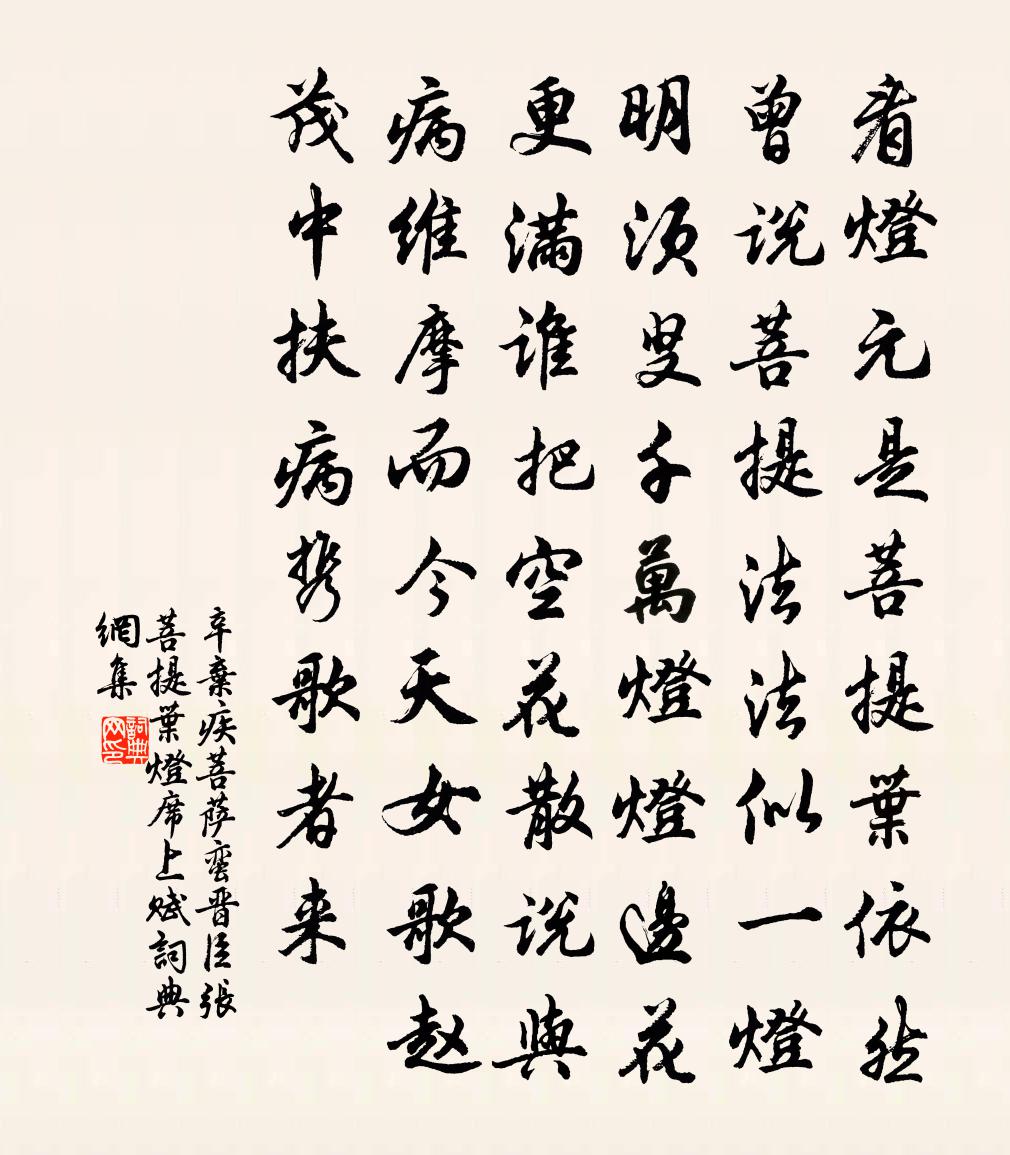 看燈元是菩提葉依然
曾説菩提法法似一燈
明須叟千萬燈燈邊花
更滿誰把空花散説與
病維摩而今天女歌赵
茂中扶病携歌者来
辛棄疾菩萨蛮晋臣張
菩提葉燈席上赋詞典
網集
詞典
网印